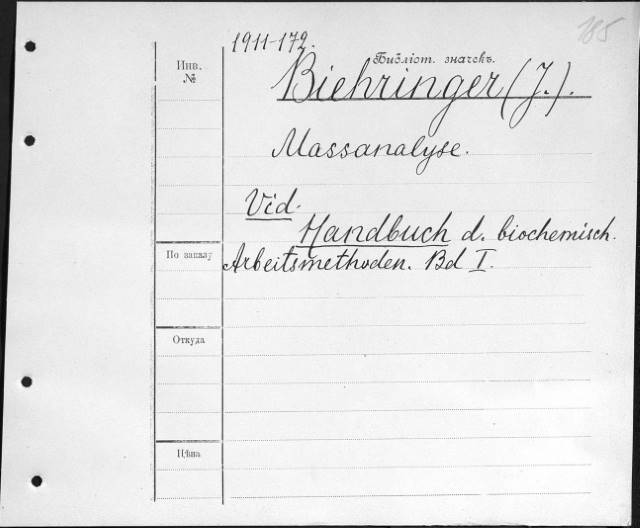 185
1911-172.
Инв. №
Библіот. значекъ.
Biehringer (J.).
Massanalyse.
Vid.
Handbuch d. biochemisch.
По заказу
Arbeitsmethoden. Bd I.
Откуда
Цѣна